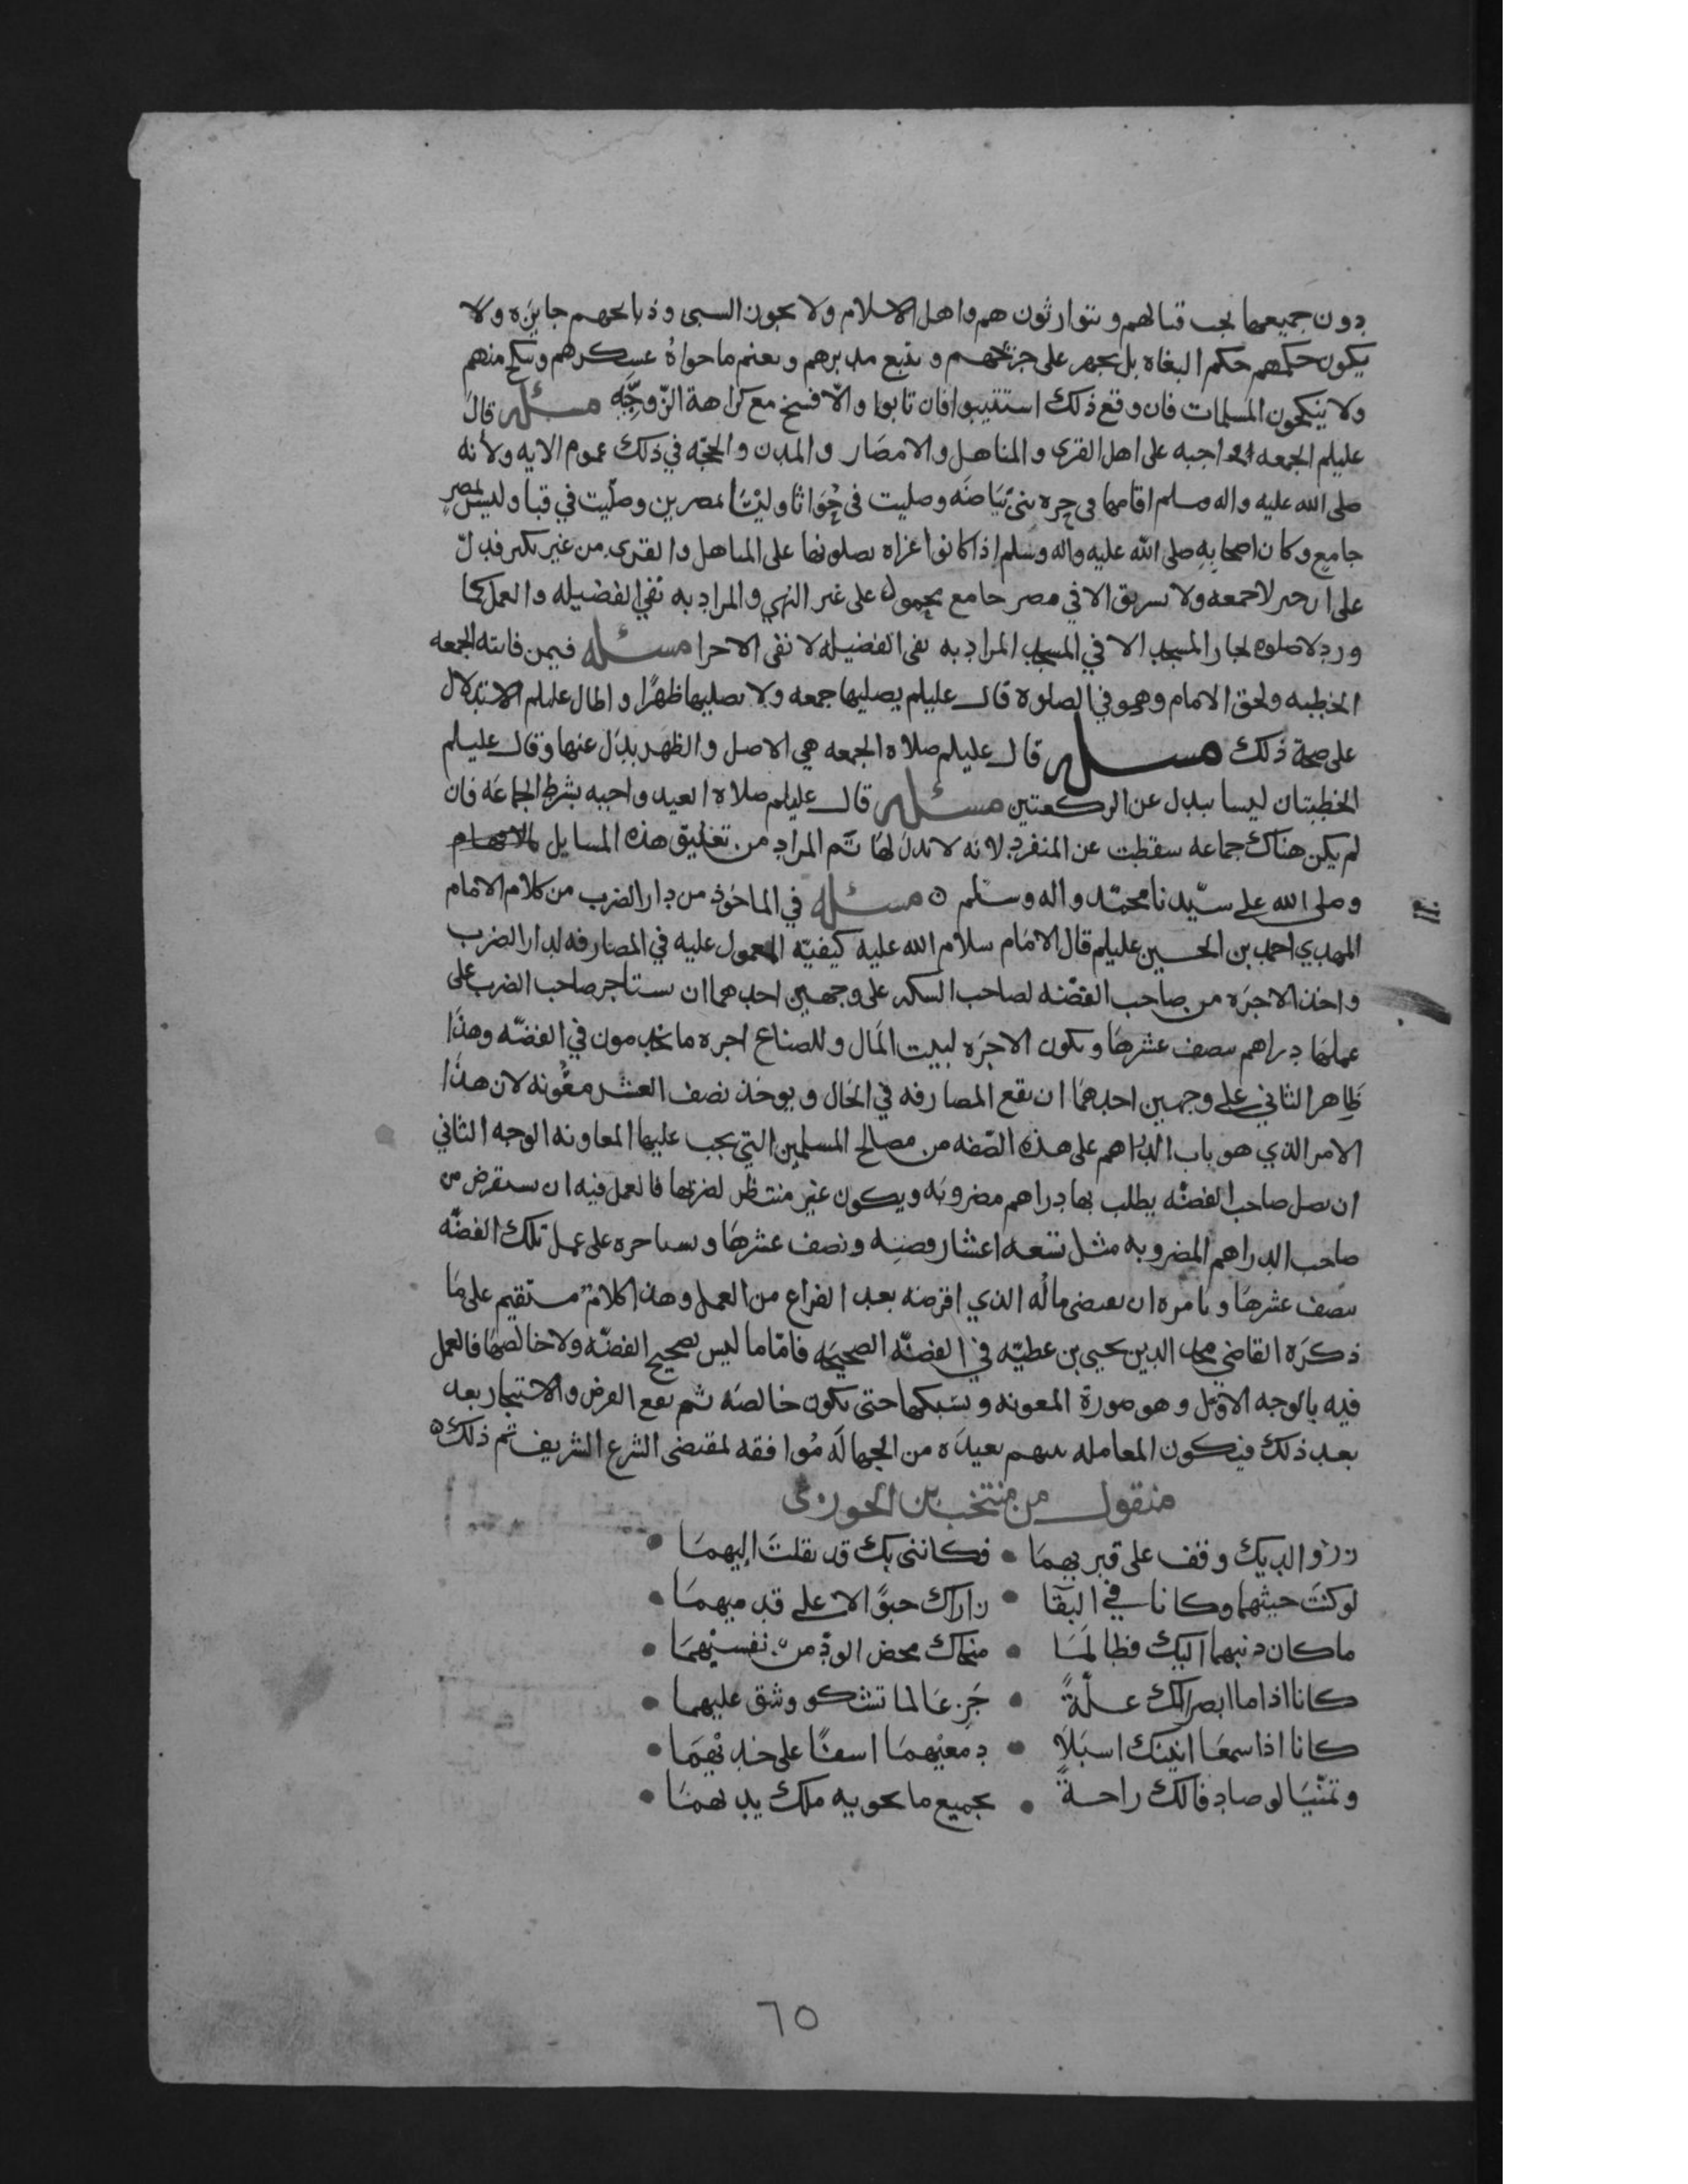 دون جميعها يجب قتالهم ويتوارثون هم واهل الاسلام ولا يجوز السبى وذبايحهم جايزه ولا
يكون حكمهم حكم البغاه بل يجهز على جريحهم ويتبع مدبرهم ويغنم ماحواه عسكرهم وينكح منهم
ولا ينكحون المسلمات فان وقع ذلك استتيبوا فان تابوا والّا فسخ مع كراهة الزّوجّه مسئله قال
عليلم الجمعه واجبه على اهل القرى والمناهل والامصار والمدن والحجّه في ذلك عموم الايه ولأنه
صلى الله عليه واله وسلم اقامها في حره بنى بَيَاضَه وصليت فى جُوَاثا وليْسَا بمصرين وصلّيت في قبا وليس بمصر
جامع وكان اصحابِهِ صلى الله عليه واله وسلم اذا كانوا غزاه يصلونها على المناهل والقرى من غير نكير فدلّ
على ان خبر لا جمعه ولا تشريق الا في مصر جامع محمول على غير النهي والمراد به نفي الفضيله والعمل كما
ورد لا صلوه لجار المسجد الا في المسجد المراد به نفى الفضيله لا نفى الاجزا مسئله فيمن فاتته الجمعه
الخطبه ولحق الامام وهو في الصلوه قال عليلم يصليها جمعه ولا يصليها ظهرًا واطال عليلم الاستدلال
على صحة ذلك مسئله قال عليلم صلاه الجمعه هي الاصل والظهر بدل عنها وقال عليلم
الخطبتان ليسا ببدل عن الركعتين مسئله قال عليلم صلاه العيد واجبه بشرط الجماعَه فان
لم يكن هناك جماعه سقطت عن المنفرد لانه لا بدل لها تَم المراد من تعليق هذه المسايل
وصلى الله على سيّدنا محمّد واله وسلم ٥ مسئله في الماخوذ من دار الضرب من كلام الامام
المهدي احمد بن الحسين عليلم قال الامام سلام الله عليه كيفيّه المعمول عليه في المصارفه لدار الضرب
واخذ الاجرَه من صاحب الفضّه لصاحب السكه على وجهين احدهما ان يستاجر صاحب الضرب على
عملها دراهم بنصف عشرها ويكون الاجرَه لبيت المَال وللصناع اجره ما يخدمون في الفضّه وهذا
ظاهر الثاني على وجهين احدهمَا ان تقع المصارفه في الحَال ويوخذ نصف العشر معُونه لان هذا
الامر الذي هو باب الدراهم على هذه الصّفه من مصالح المسلمين التي يجب عليها المعاونه الوجه الثاني
ان يصل صاحب الفضّه يطلب بها دراهم مضروبَه ويكون غير منتظر لضربها فالعمل فيه ان يستقرض من
صاحب الدراهم المضروبه مثل تسعه اعشار فضتِه ونصف عشرهَا ويستاجره على عمل تلك الفضّه
بنصف عشرهَا ويَامره ان يقبضى مالُه الذي اقرضه بعد الفراغ من العمل وهذا كلامٌ مستقيم على مَا
ذكرَه القاضي محي الدين يحيى بن عطيّه في الفضّه الصحيحَه فامّا ما ليس بصحيح الفضّه ولا خالصها فالعمل
فيه بالوجه الاوّل وهو صورة المعونه ويسَبكها حتى يكون خالصَه ثم يقع القرض والاستيجار بعد
بعد ذلك فيكون المعامله بينهم بعيدَه من الجهالَه مُوافقه لمقتضى الشرع الشريف ثم ذلك ٥
منقول من منتخب بن الجوزى
زر والديك وقف على قبريهمَا • فكاننى بك قد نقلتَ اليهمَا •
لو كنتَ حيثهما وكانا في البَقَا • زاراك حبوًا لا على قدميهمَا •
ماكان ذنبهما اليك فطالمَا • منحاك محض الودّ من نفسيْهمَا •
كانا اذا ما ابصرا بك علّةً • جَزِعَا لما تشكو وشق عليهما •
كانا اذا سمعَا انينك اسبَلَا • دمعيْهمَا اسفًا على خديْهمَا •
وتمنّيَا لو صادفا لك راحةً • بجميع ما يحويه ملك يديهمَا •
٦٥